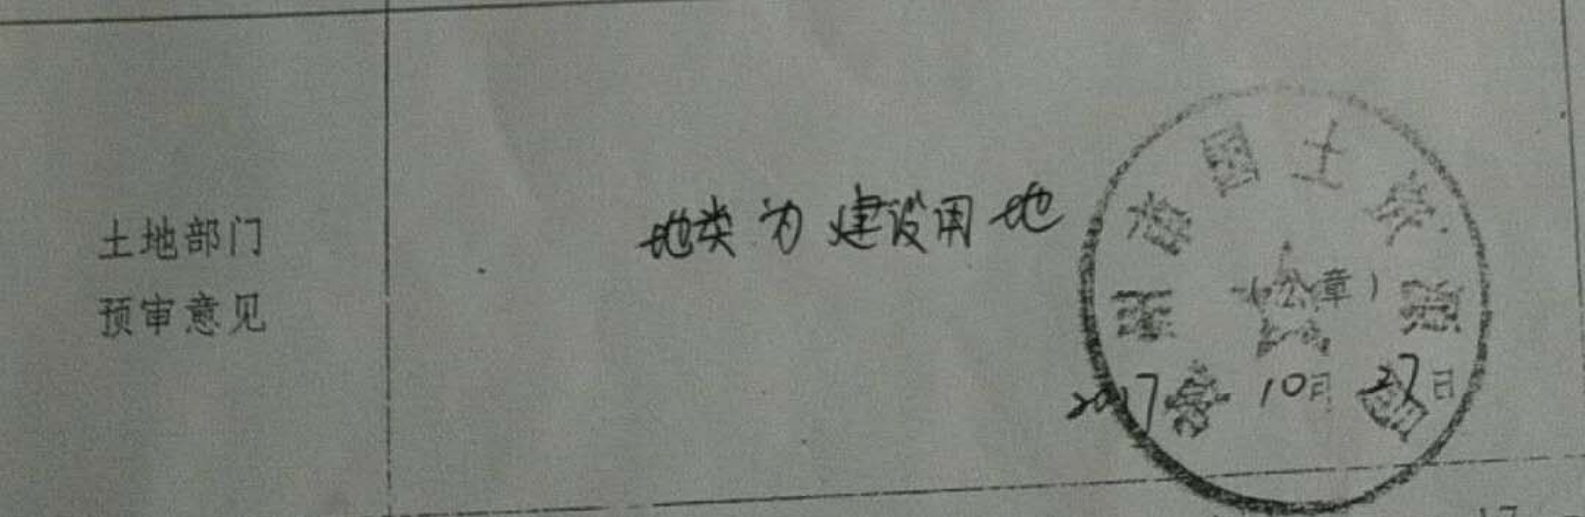 土地部门
预审意见
地类为建设用地
国土资源
(公章)
2017年10月27日